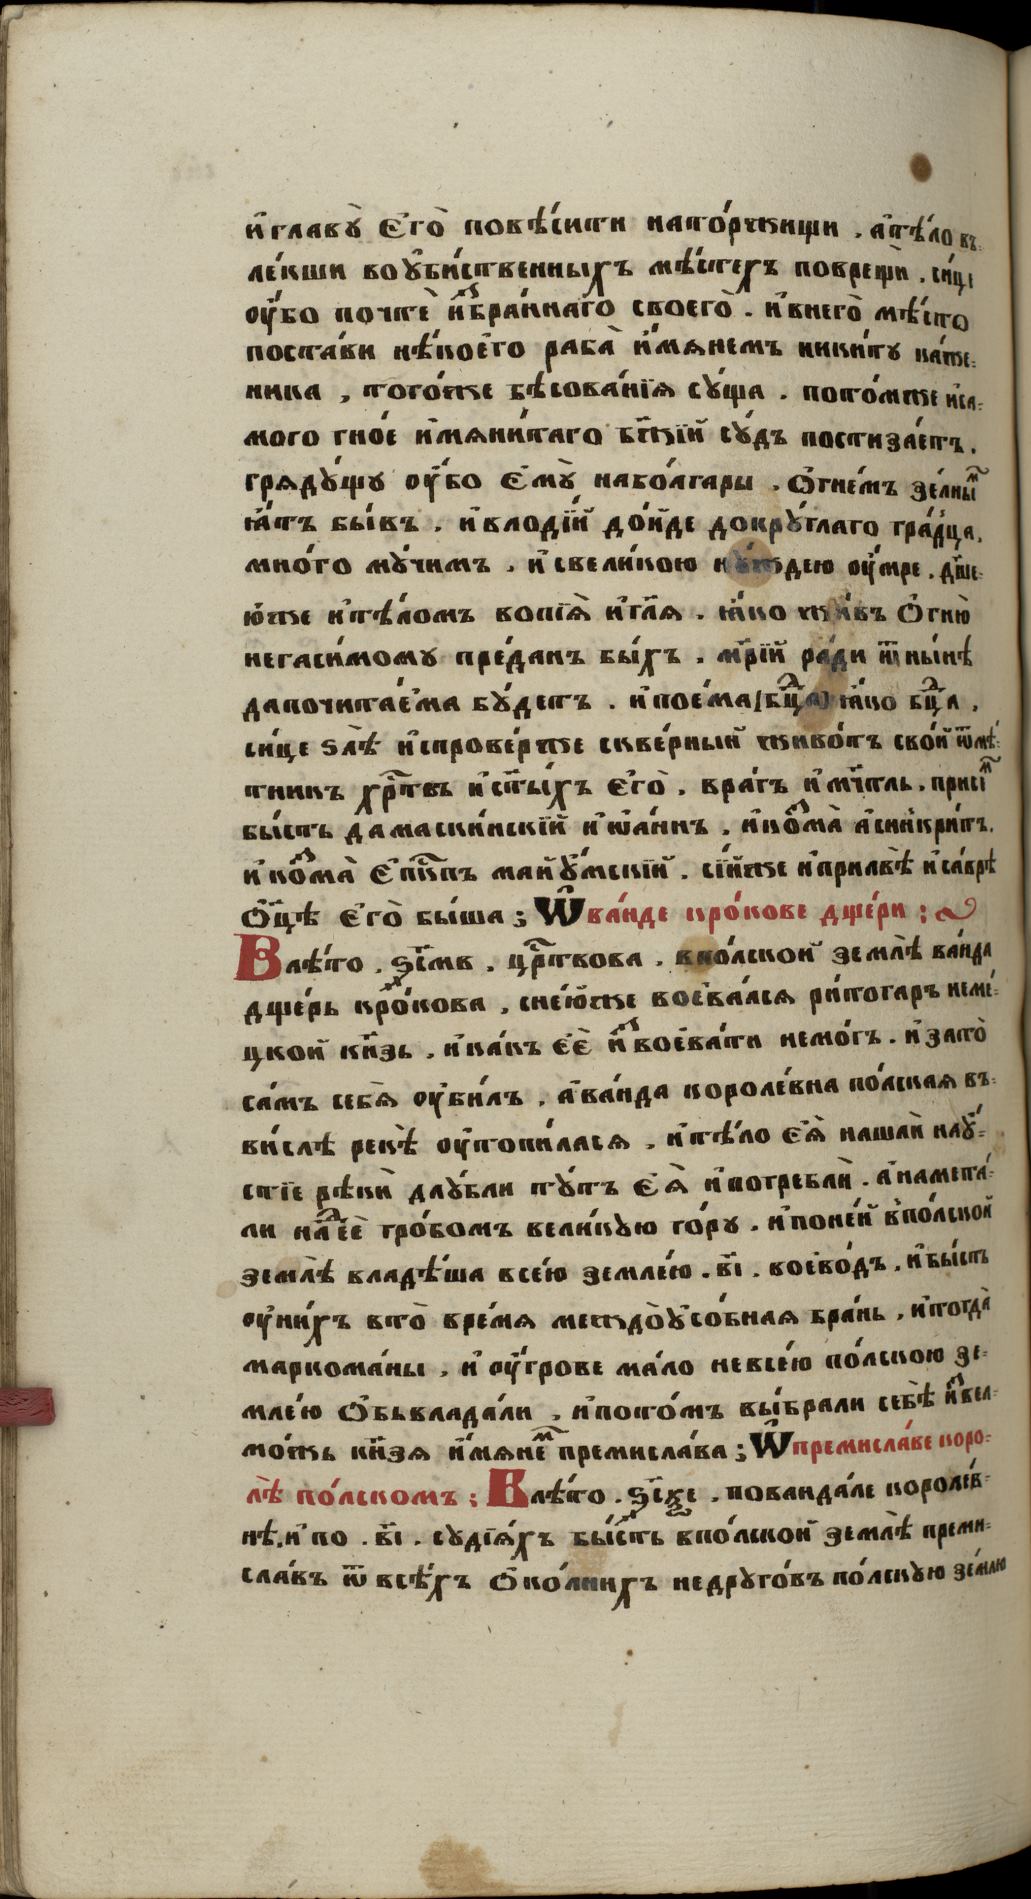 и҆главꙋ̀ є҆гѡ̀ повѣ́сити нато́ржищи . а҆тѣ́ло въ-
ле́кши воᲂу҆би́йственныхъ мѣ́стехъ повре́щѝ . си́це
ᲂу҆́бо почтѐ и҆збра́ннаго своего̀ . и҆внего̀ мѣ́сто
поста́ви нѣ́коего раба̀ и҆́мянемъ ники́тꙋ ка́же-
ника , того́же бѣсова́нїѧ сꙋ́ща . пото́мже и҆са-
мого гно́е и҆мяни́таго бж҃їй сꙋ́дъ постиза́етъ .
грядꙋ́щꙋ ᲂу҆́бо є҆мꙋ̀ набо́лгары . ѻ҆гне́мъ зе́лнымъ
ꙗ҆́тъ бы́въ . и҆влоді́й до́йде докрꙋ́глаго гра́дца ,
мно́го мꙋ́чимъ . и҆свели́кою нꙋ́ждею ᲂу҆́мре . дш҃е-
ю́же и҆тѣ́ломъ вопїѧ̀ и҆гл҃ѧ . ꙗ҆́ко жи́въ ѻ҆гню̀
негаси́момꙋ пре́данъ бы́хъ . мр҃їи ра́ди ѿны́нѣ
дапочита́ема бꙋ́детъ . и҆пое́ма (бц҃да) ꙗ҆́ко бц҃да .
си́це ѕлѣ̀ и҆спрове́рже скве́рный живо́тъ сво́й ѿмѣ́-
тникъ хрⷭ҇товъ и҆ст҃ы́хъ є҆гѡ̀ . вра́гъ и҆мч҃тль . при́сїⷨ
бы́сть дамаски́нскїй и҆ѡа́ннъ . и҆козма̀ а҆синкри́тъ .
и҆козма̀ є҆пⷭ҇кпъ майꙋ́мскїй . сі́йже и҆прилвѣ̀ и҆са́врѣ
ѻ҆ц҃ѣ̀ є҆гѡ̀ бы́ша ; Ѡ҆ ва́нде кро́кове дще́ри ;
Влѣ́то . ѕ҃смв . црⷭ҇твова . впо́лской землѣ̀ ва́нда
дще́рь кро́кова , сне́юже воева́лся ри́тогаръ неме́-
цкой кн҃зь . и҆ка́къ є҆є̀ и҆звоева́ти немо́гъ . и҆зато̀
са́мъ себѧ̀ ᲂу҆би́лъ . а҆ва́нда короле́вна по́лская въ-
ви́слѣ рекѣ̀ ᲂу҆топи́лася . и҆тѣ́ло є҆ѧ̀ нашлѝ наꙋ́-
стїе рѣкѝ длꙋ́бли тꙋ́тъ є҆ѧ̀ и҆погреблѝ . а҆намета́-
ли наⷣ є҆є̀ гро́бомъ вели́кꙋю го́рꙋ . и҆поне́й впо́лской
землѣ̀ владѣ́ша все́ю земле́ю . в҃і . воево́дъ . и҆бы́сть
ᲂу҆ни́хъ вто̀ вре́мя междоꙋсо́бная бра́нь , и҆тогда̀
маркома́ны , и҆ ᲂу҆́грове ма́ло невсе́ю по́лскою зе-
мле́ю ѻ҆бьвлада́ли . и҆пото́мъ вы́брали себѣ̀ и҆звел-
мо́жъ кн҃зя и҆́мянеⷨ премисла́ва ; Ѡ҆ премисла́ве коро-
лѣ̀ по́лскомъ ; Влѣ́то . ѕ҃сѯе . пованда́ле короле́в-
нѣ . и҆по . в҃і . сꙋдїѧ́хъ бы́сть впо́лской землѣ̀ преми-
сла́въ ѿ всѣ́хъ ѻ҆ко́лнихъ недрꙋго́въ по́лскꙋю зе́млю